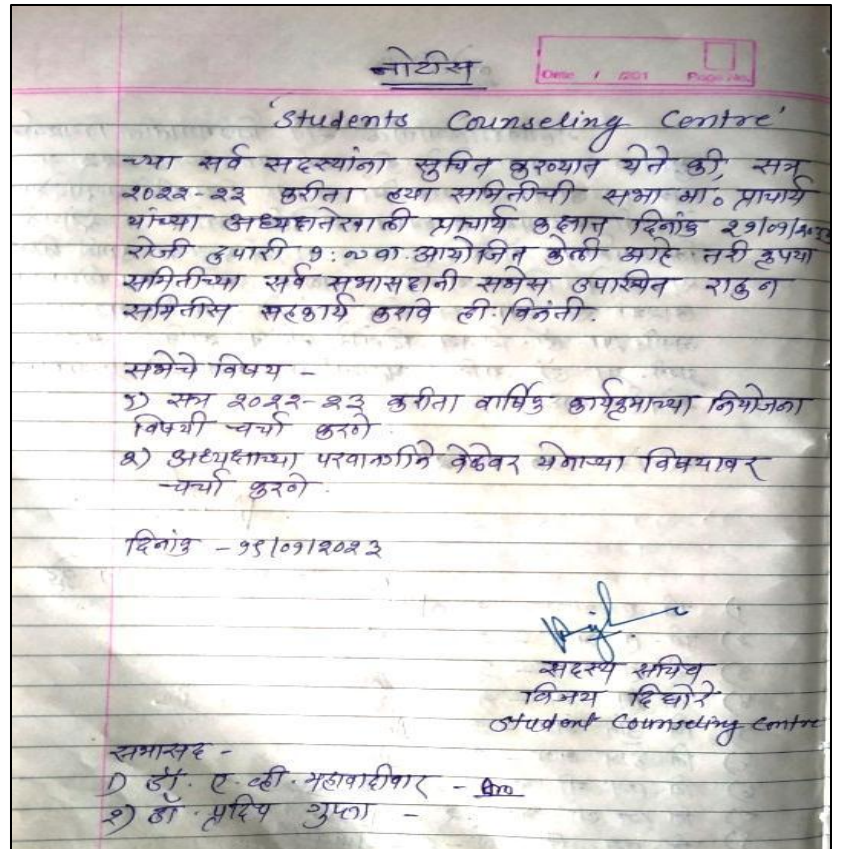 नोटीस
Date / /201 Page No.
'Students Counseling Centre'
च्या सर्व सदस्यांना सुचित करण्यात येते की, सत्र
२०२२-२३ करीता ह्या समितीची सभा मा. प्राचार्य
यांच्या अध्यक्षतेखाली प्राचार्य कक्षात दिनांक
रोजी दुपारी वा. आयोजित केली आहे तरी कृपया
समितीच्या सर्व सभासदांनी सभेस उपस्थित राहुन
समितीस सहकार्य करावे ही विनंती.
सभेचे विषय -
१) सत्र २०२२-२३ करीता वार्षिक कार्यक्रमाच्या नियोजना
विषयी चर्चा करणे.
२) अध्यक्षाच्या परवानगीने वेळेवर येणाऱ्या विषयावर
चर्चा करणे.
दिनांक - १९/०१/२०२३
सदस्य सचिव
विजय दिघोरे
Student Counseling Centre
सभासद -
१) डॉ. ए. व्ही. महावादीवार -
२) डॉ. प्रदिप गुप्ता -